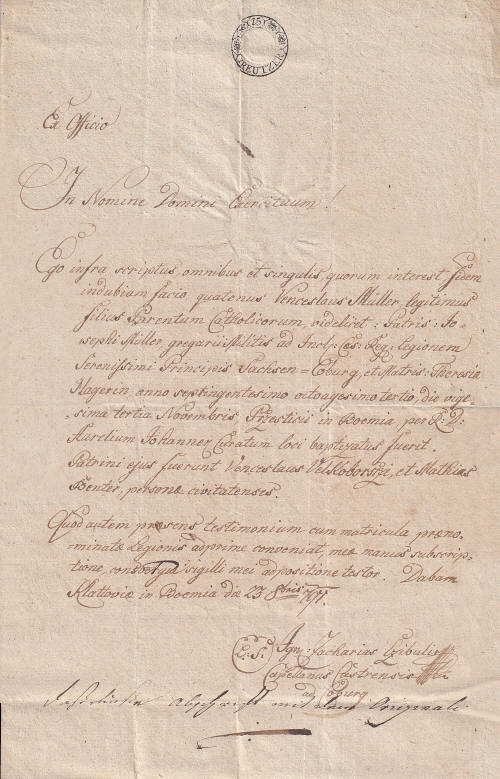 15
CREUTZER
Ex Officio
In Nomine Domini Exercituum!
Ego infra scriptus, omnibus et singulis, quorum interest, fidem
indubiam facio, quatenus Venceslaus Müller, legitimus
filius Parentum Catholicorum, videlicet: Patris: Jo-
sephi Müller, gregarii Militis ad Incl: Cæs: Reg: legionem
Serenissimi Principis Sachsen=Coburg, et Matris: Theresia
Hagerin, anno septingentesimo octoagesimo tertio, die vige-
=sima tertia Novembris, Przesticii in Boemia, per P: D:
Aurelium Johannen Curatum loci baptizatus fuerit.
Patrini ejus fuerunt Venceslaus, et Mathias
Benter, personæ civitatenses.
Quod autem præsens testimonium cum matricula præno-
=minatæ Legionis adprime conveniat, meæ manus subscrip-
tione, sigilli mei adpositione testor. Dabam
Klattoviæ in Boemia die 23 8bris 797.
L: S:
Ign: Zacharias
Capellanus Castrensis
ad Coburg
Abschrift mit dem Originali